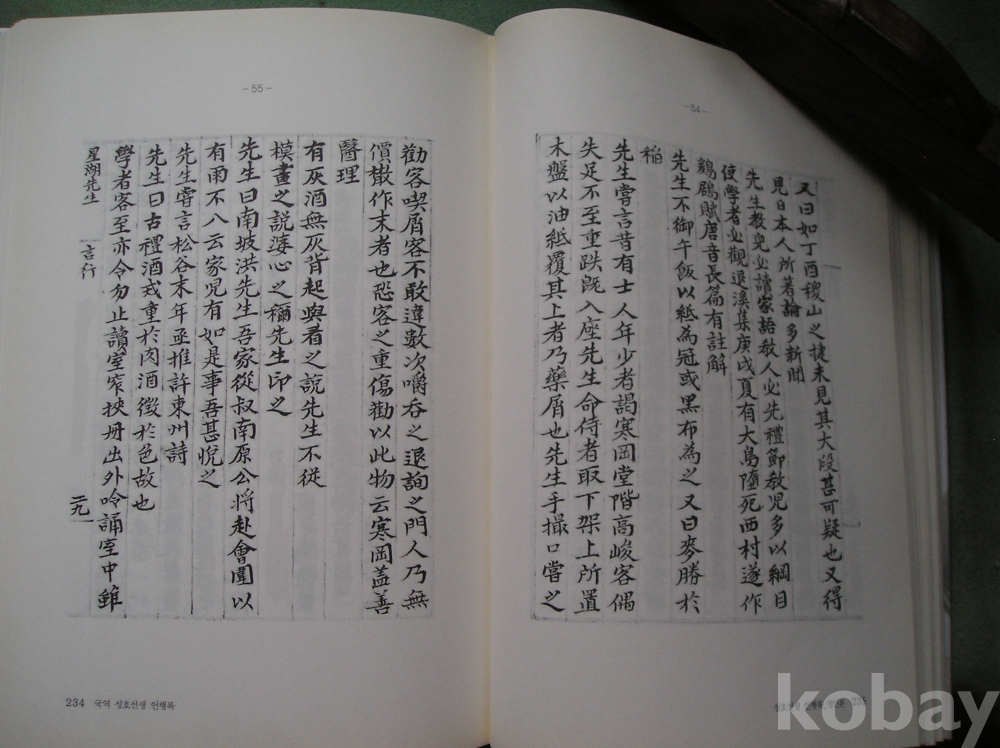 -54-
又曰如丁酉稷山之捷未見其大段甚可疑也又得
見日本人所著論多新聞
先生教兒必讀家語教人必先禮節教兒多以綱目
使學者必觀退溪集庚戌夏有大鳥墮死西村遂作
鶋賦唐音長篇有註解
先生不御午飯以紙為冠或黑布為之又曰麥勝於
稻
先生嘗言昔有士人年少者謁寒岡堂階高峻客偶
失足不至重跌旣入座先生命侍者取下架上所置
木盤以油紙覆其上者乃藥屑也先生手撮口嘗之
-55-
勸客喫屑客不敢違數次嚼呑之退詢之門人乃無
價作末者也恐客之重傷勸以此物云寒岡盖善
醫理
有灰酒無灰背起與看之說先生不從
模畫之說婆心之稱先生印之
先生曰南坡洪先生吾家從叔南原公將赴會圍以
有雨不入云家兒有如是事吾甚悅之
先生嘗言松谷末年亟推許東州詩
先生曰古禮酒戒重於肉酒徵於色故也
學者客至亦令勿止讀室窄挾冊出外吟誦室中雖
星湖先生 言行 二九
234 국역 성호선생 언행록
성호선생 언행록 영인본 235
kobay